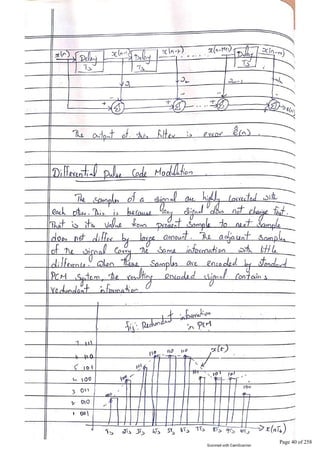 x(n) Delay Ts x(n-1) Delay Ts x(n-2) x(n-m+1) Delay Ts x(n-m)
The output of this filter is error e(n).
Differential Pulse Code Modulation
The samples of a signal are highly corrected with
each other. This is because any signal does not change fast.
That is its value from present sample to next sample
does not differ by large amount. The adjacent samples
of the signal carry the same information with little
difference. When these samples are encoded by standard
PCM system, the resulting encoded signal contains
redundant information
fig: Redundant information
in PCM
x(t)
7 111
6 110
5 101
4 100
3 011
2 010
1 001
t(nTs)
Scanned with CamScanner
Page 40 of 258